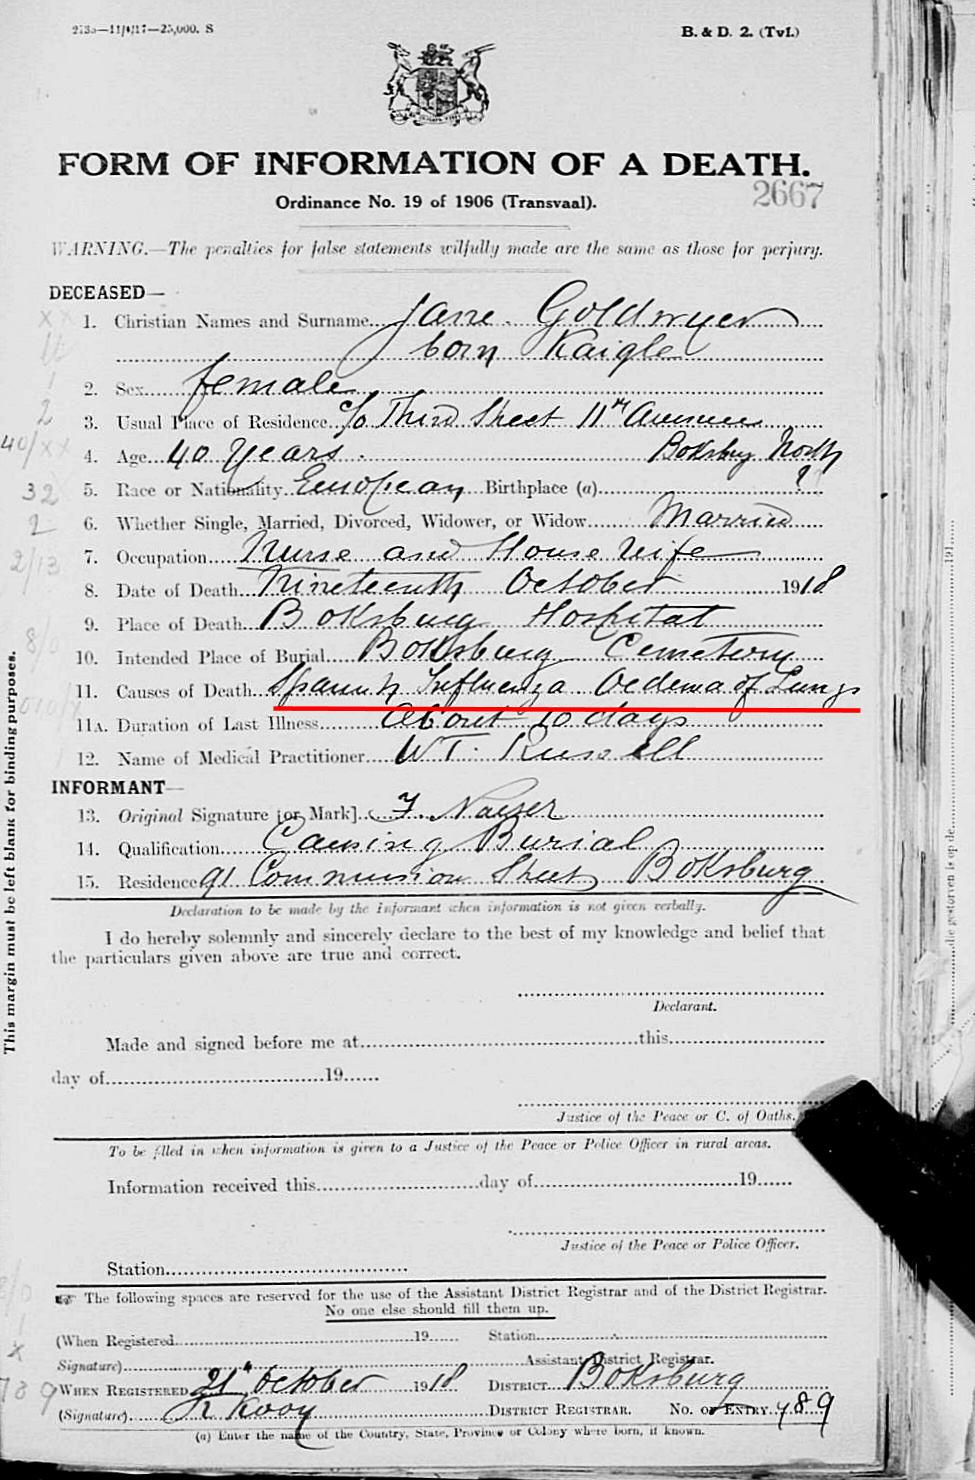 273a—11/4/17—25,000. S
B. & D. 2. (Tvl.)
FORM OF INFORMATION OF A DEATH.
2667
Ordinance No. 19 of 1906 (Transvaal).
WARNING.—The penalties for false statements wilfully made are the same as those for perjury.
DECEASED—
1. Christian Names and Surname Jane Goldwyer
born Kaigle
2. Sex female
3. Usual Place of Residence c/o Third Street 11th Avenue
Boksburg North
4. Age 40 years.
5. Race or Nationality European Birthplace (a) ?
6. Whether Single, Married, Divorced, Widower, or Widow Married
7. Occupation Nurse and House Wife
8. Date of Death Nineteenth October 1918
9. Place of Death Boksburg Hospital
10. Intended Place of Burial Boksburg Cemetery
11. Causes of Death Spanish Influenza Oedema of Lungs
11A. Duration of Last Illness About 10 days
12. Name of Medical Practitioner W T. Russell
INFORMANT—
13. Original Signature [or Mark] F. Nayser
14. Qualification Causing Burial
15. Residence 91 Commission Street Boksburg
Declaration to be made by the informant when information is not given verbally.
I do hereby solemnly and sincerely declare to the best of my knowledge and belief that
the particulars given above are true and correct.
Declarant.
Made and signed before me at this
day of 19
Justice of the Peace or C. of Oaths.
To be filled in when information is given to a Justice of the Peace or Police Officer in rural areas.
Information received this day of 19
Justice of the Peace or Police Officer.
Station
The following spaces are reserved for the use of the Assistant District Registrar and of the District Registrar.
No one else should fill them up.
(When Registered 19 Station
Signature) Assistant District Registrar.
WHEN REGISTERED 21st October 1918 DISTRICT Boksburg
(Signature) Kooy DISTRICT REGISTRAR. No. OF ENTRY 789
(a) Enter the name of the Country, State, Province or Colony where born, if known.
This margin must be left blank for binding purposes.
40/xx
32
2
2/13
789